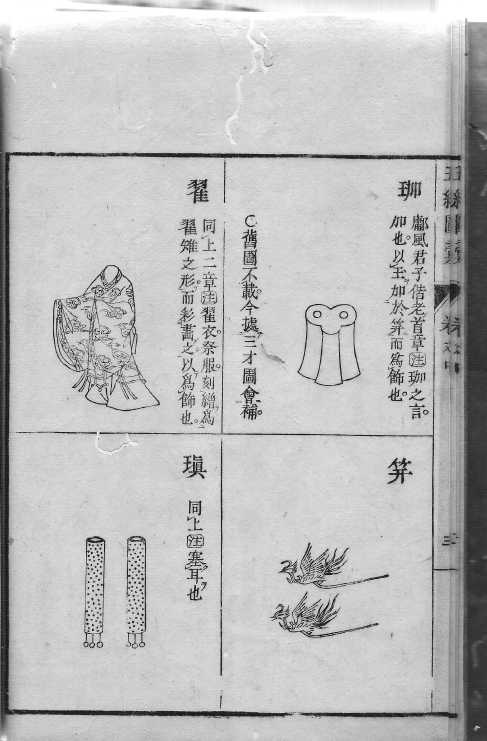 珈
鄘風君子偕老首章注珈之言
加也以玉加於筓而爲飾也。
〇舊圖不載。今據三才圖會補。
筓
翟
同上二章注翟衣。祭服。刻繒爲
翟雉之形。而彩畫之以爲飾也。
瑱
同上注塞耳也
五經圖彙
三